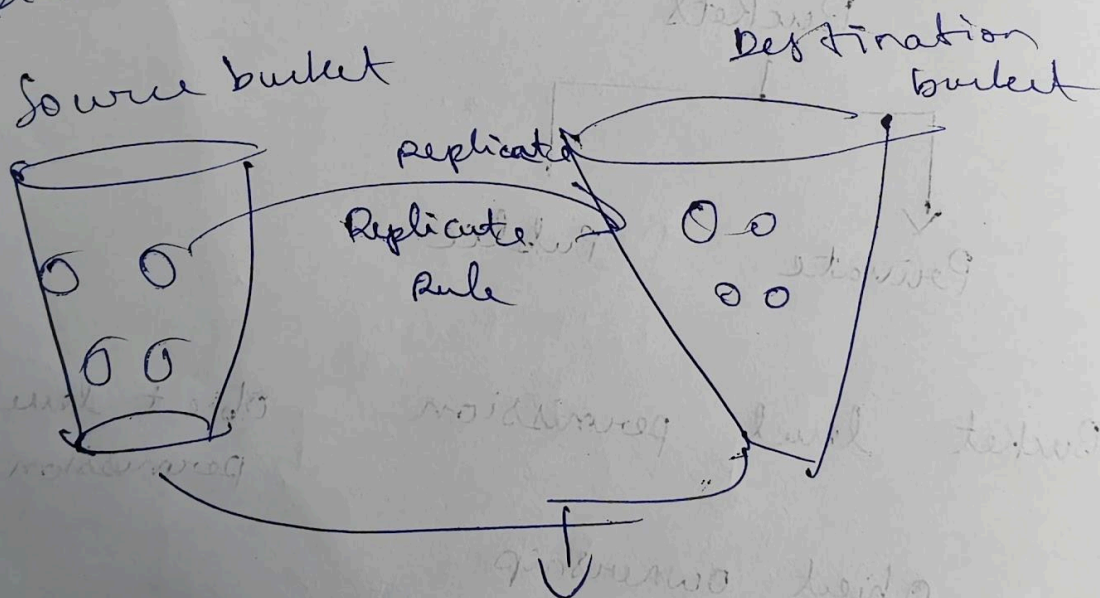 Source bucket
Destination
bucket
Replicate
Replicate
Rule